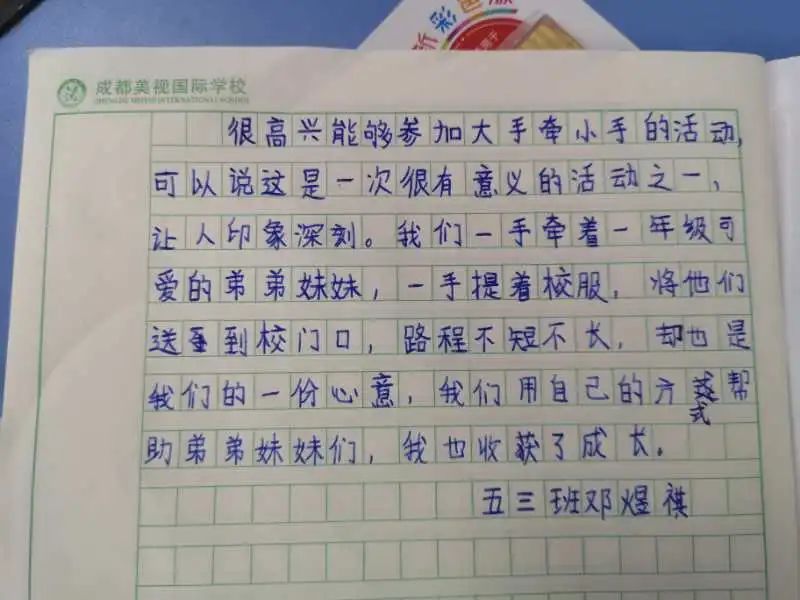 新彩色版
成都美视国际学校
CHENGDU MEISHI INTERNATIONAL SCHOOL
很高兴能够参加大手牵小手的活动,
可以说这是一次很有意义的活动之一,
让人印象深刻。我们一手牵着一年级可
爱的弟弟妹妹,一手提着校服,将他们
送到校门口,路程不短不长,却也是
我们的一份心意,我们用自己的方式帮
助弟弟妹妹们,我也收获了成长。
五三班邓煜祺